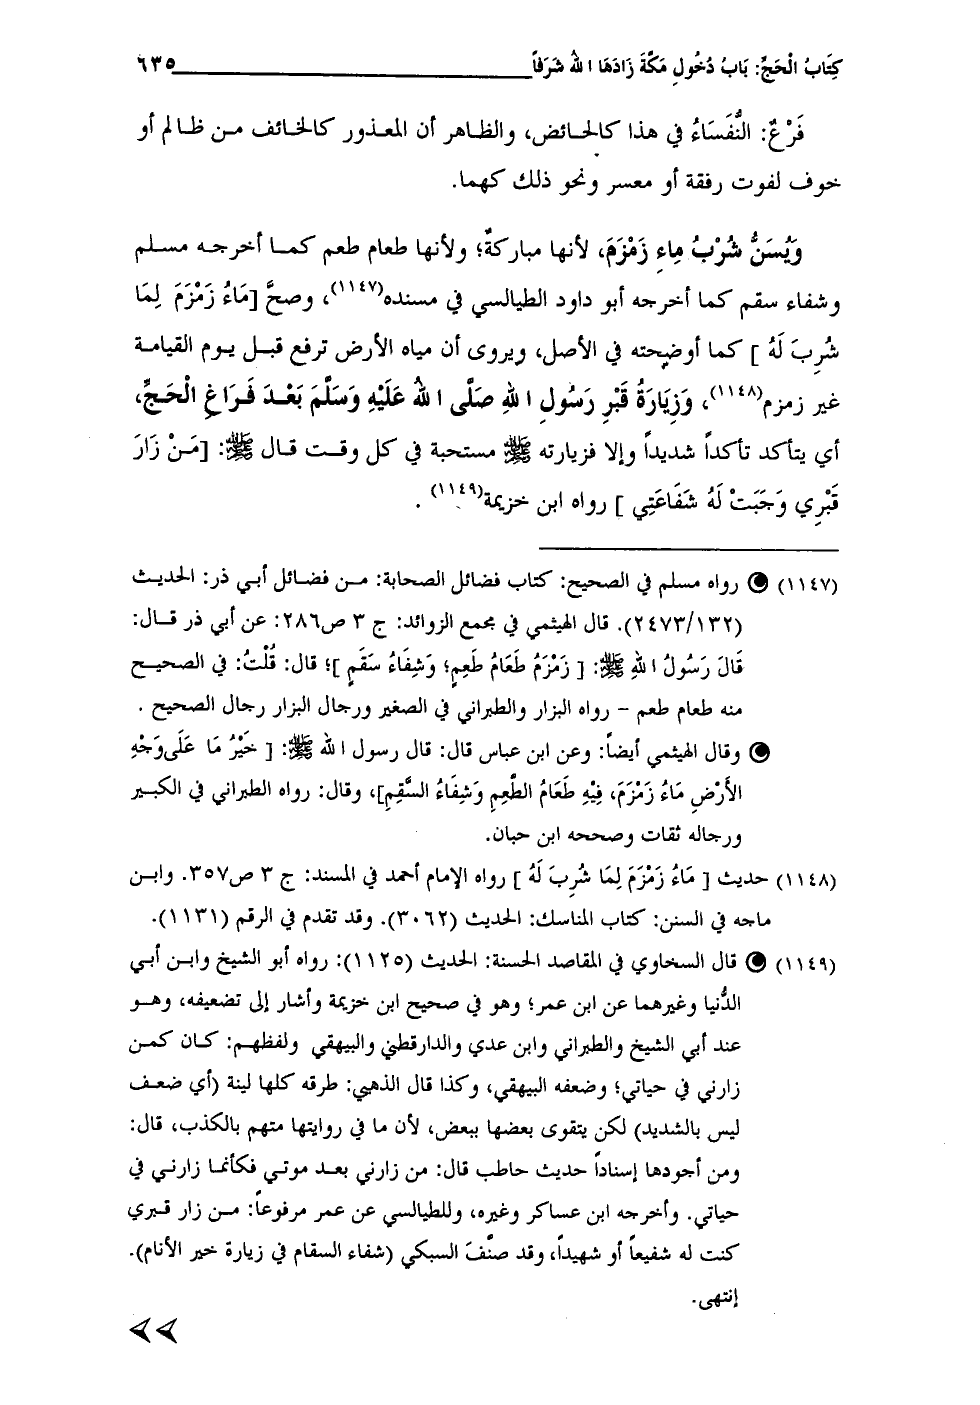 كِتَابُ الْحَجِّ: بَابُ دُخُولِ مَكَّةَ زَادَهَا اللهُ شَرَفاً ٦٣٥
فَرْعٌ: النُّفَسَاءُ في هذا كالحائض، والظاهر أن المعذور كالخائف من ظالم أو
خوف لفوت رفقة أو معسر ونحو ذلك كهما.
وَيُسَنُّ شُرْبُ مِاءِ زَمْزَمَ، لأنها مباركةٌ؛ ولأنها طعام طعم كما أخرجه مسلم
وشفاء سقم كما أخرجه أبو داود الطيالسي في مسنده(١١٤٧)، وصحَّ [مَاءُ زَمْزَمَ لِمَا
شُرِبَ لَهُ ] كما أوضحته في الأصل، ويروى أن مياه الأرض ترفع قبل يوم القيامة
غير زمزم(١١٤٨)، وَزِيَارَةُ قَبْرِ رَسُولِ اللهِ صَلَّى اللهُ عَلَيْهِ وَسَلَّمَ بَعْدَ فَرَاغِ الْحَجِّ،
أي يتأكد تأكداً شديداً وإلا فزيارته ﷺ مستحبة في كل وقت قال ﷺ: [مَنْ زَارَ
قَبْرِي وَجَبَتْ لَهُ شَفَاعَتِي ] رواه ابن خزيمة(١١٤٩).
(١١٤٧) رواه مسلم في الصحيح: كتاب فضائل الصحابة: من فضائل أبي ذر: الحديث
(٢٤٧٣/١٣٢). قال الهيثمي في مجمع الزوائد: ج ٣ ص٢٨٦: عن أبي ذر قال:
قَالَ رَسُولُ اللهِ ﷺ: [ زَمْزَمُ طَعَامُ طَعِمٍ؛ وَشِفَاءُ سَقَمٍ ]؛ قال: قُلْتُ: في الصحيح
منه طعام طعم – رواه البزار والطبراني في الصغير ورجال البزار رجال الصحيح .
وقال الهيثمي أيضاً: وعن ابن عباس قال: قال رسول الله ﷺ: [ خَيْرُ مَا عَلَى وَجْهِ
الأَرْضِ مَاءُ زَمْزَمَ، فِيْهِ طَعَامُ الطَّعِمِ وَشِفَاءُ السَّقِمِ]، وقال: رواه الطبراني في الكبير
ورجاله ثقات وصححه ابن حبان.
(١١٤٨) حديث [ مَاءُ زَمْزَمَ لِمَا شُرِبَ لَهُ ] رواه الإمام أحمد في المسند: ج ٣ ص٣٥٧. وابن
ماجه في السنن: كتاب المناسك: الحديث (٣٠٦٢). وقد تقدم في الرقم (١١٣١).
(١١٤٩) قال السخاوي في المقاصد الحسنة: الحديث (١١٢٥): رواه أبو الشيخ وابن أبي
الدُّنيا وغيرهما عن ابن عمر؛ وهو في صحيح ابن خزيمة وأشار إلى تضعيفه، وهو
عند أبي الشيخ والطبراني وابن عدي والدارقطني والبيهقي ولفظهم: كان كمن
زارني في حياتي؛ وضعفه البيهقي، وكذا قال الذهبي: طرقه كلها لينة (أي ضعف
ليس بالشديد) لكن يتقوى بعضها ببعض، لأن ما في روايتها متهم بالكذب، قال:
ومن أجودها إسناداً حديث حاطب قال: من زارني بعد موتي فكأنما زارني في
حياتي. وأخرجه ابن عساكر وغيره، وللطيالسي عن عمر مرفوعاً: من زار قبري
كنت له شفيعاً أو شهيداً، وقد صنَّفَ السبكي (شفاء السقام في زيارة خير الأنام).
إنتهى.